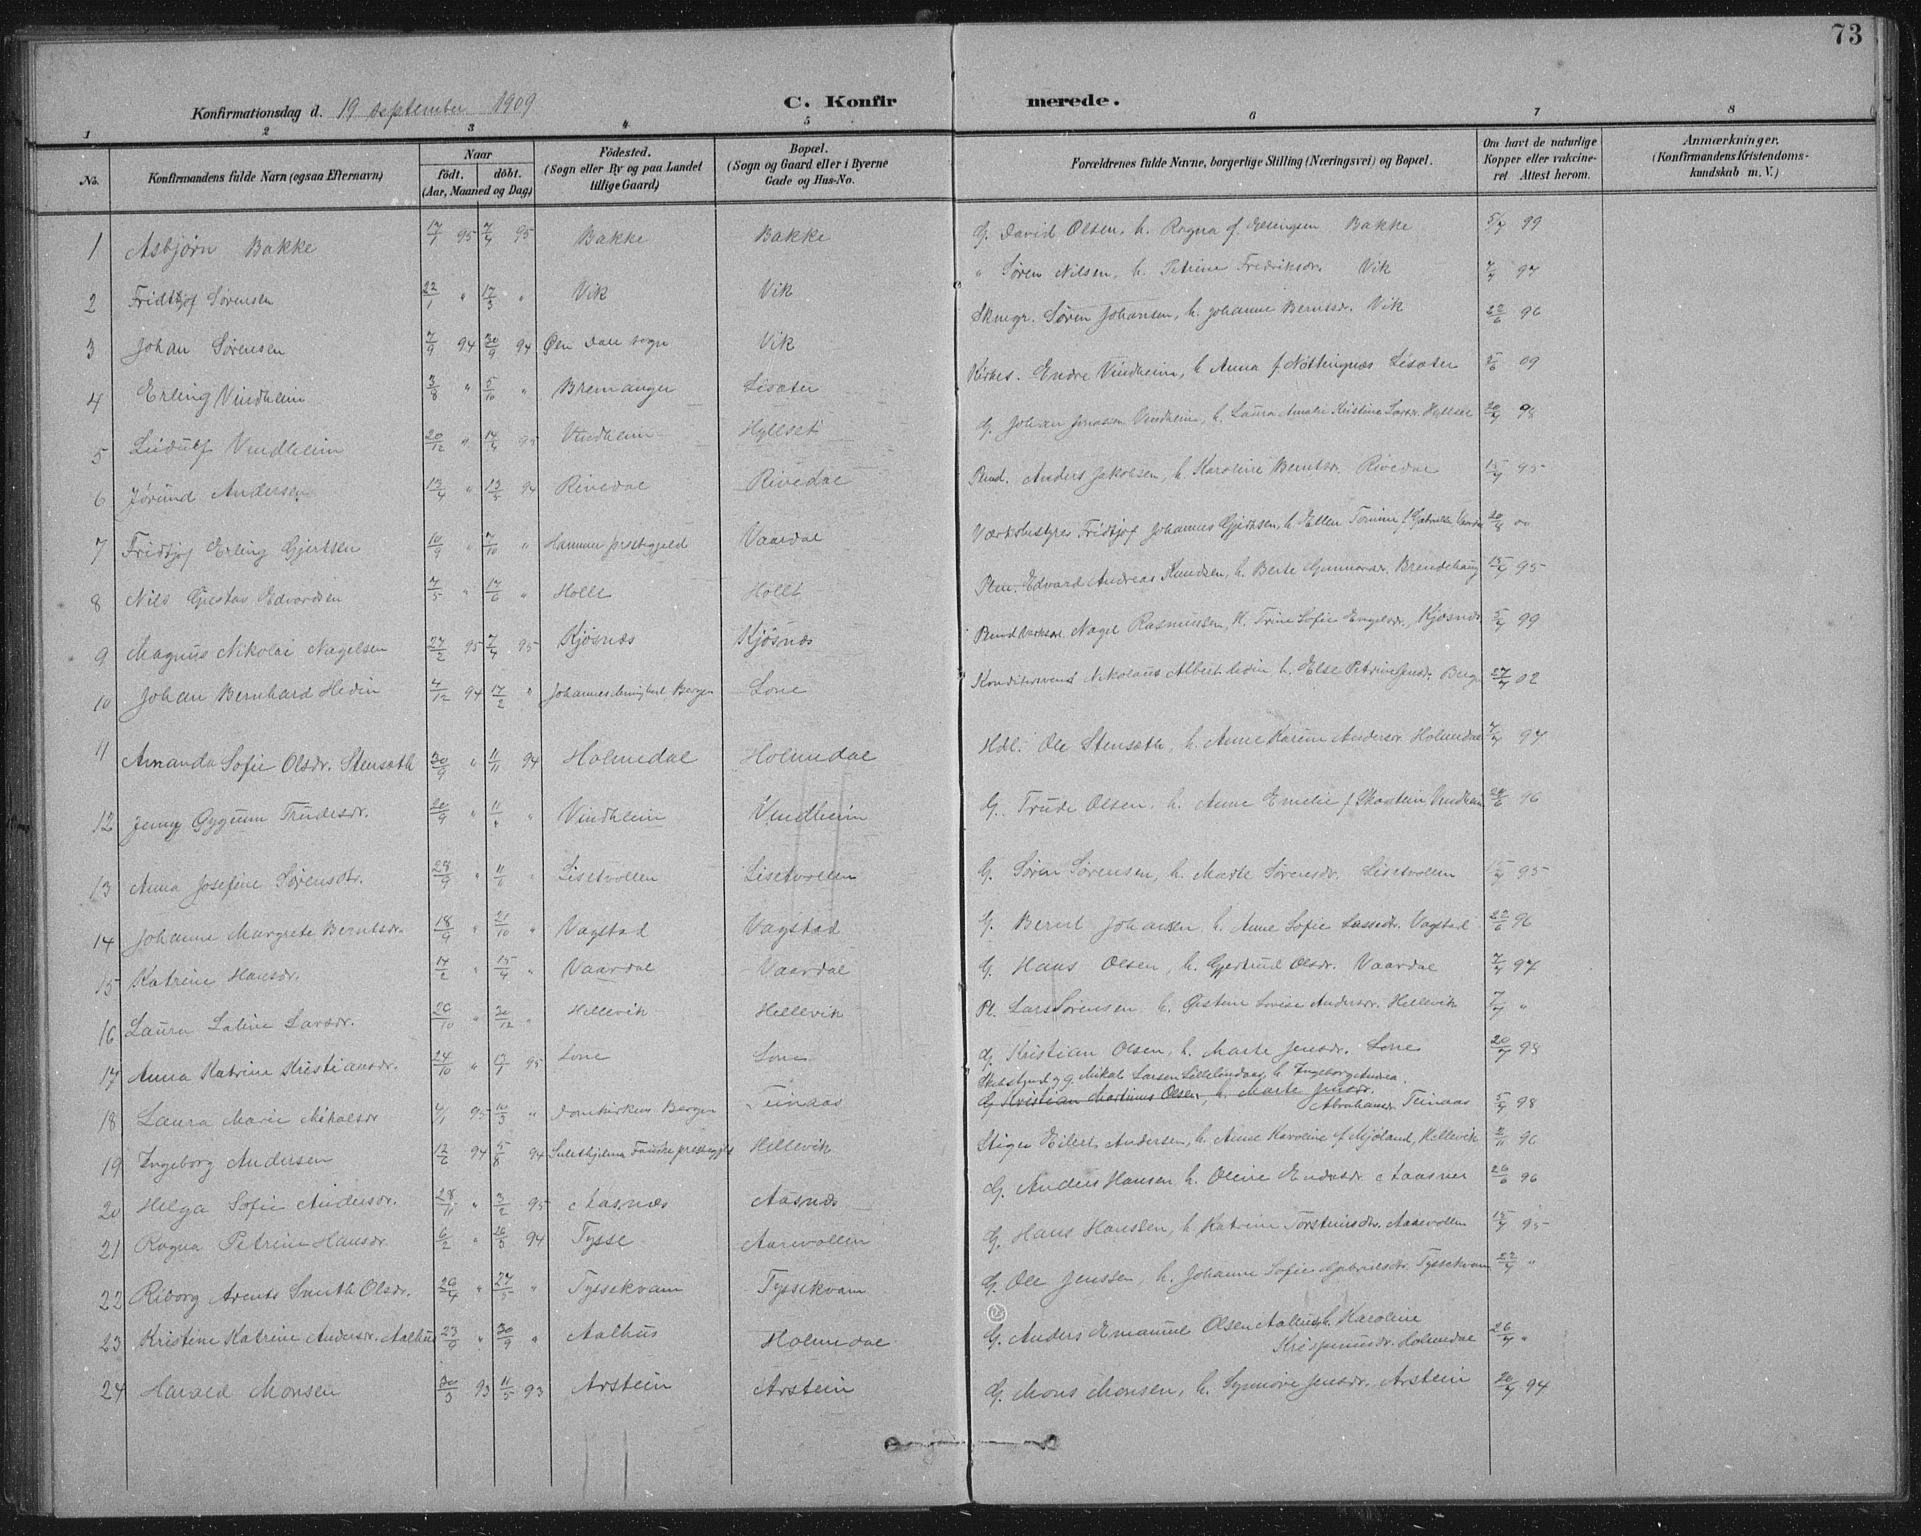 73
Konfirmationsdag d. 19 september 1909
C. Konfirmerede.
1 2 3 4 5 6 7 8
No.
Konfirmandens fulde Navn (ogsaa Efternavn)
Naar
født. døbt.
(Aar, Maaned og Dag)
Fødested.
(Sogn eller By og paa Landet
tillige Gaard)
Bopæl.
(Sogn og Gaard eller i Byerne
Gade og Hus-No.
Forældrenes fulde Navne, borgerlige Stilling (Næringsvei) og Bopæl.
Om havt de naturlige
Kopper eller vakcine-
ret Attest herom.
Anmærkninger.
(Konfirmandens Kristendoms-
kundskab m. V.)
1 Asbjørn Bakke 17/1 95 7/4 95 Bakke Bakke G. David Olsen, h. Ragna f. Bakke 5/7 99
2 Fridtjof Sørensen 22/1 " 17/3 " Vik Vik " Søren Nilsen, h. Petrine Fredriksdr. Vik 7/7 97
3 Johan Sørensen 7/9 94 30/9 94 Øen Dale sogn Vik Skmgr. Søren Johansen, h. Johanne Berntsdr. Vik 22/6 96
4 Erling Vindheim 3/8 " 5/10 " Bremanger Lisæter Kirkes. Endre Vindheim, h. Anna f. Nøttingnes Lisæter 5/6 09
5 Ludulf Vindheim 20/12 " 14/4 95 Vindheim Hyllset G. Johan Vindheim, h. Laura Amalie Kristine Larsdr. Hyllset 20/7 98
6 Jørund Andersen 13/4 " 13/5 94 Rivedal Rivedal Anders Jakobsen, h. Karoline Berntsdr. Rivedal 15/7 95
7 Fridtjof Erling Gjertsen 10/9 " 7/10 " Hammer prestegjeld Vaardal Værksbestyrer Fridtjof Johannes Gjertsen, h. Ellen 20/8 00
8 Nils Gustav Edvardsen 7/5 " 17/6 " Holle Holle Plm. Edvard Andreas Knudsen, h. Berte Gunnarsdr. Brendehaug 15/7 95
9 Magnus Nikolai Nagelsen 27/2 95 7/4 95 Kjøsnæs Kjøsnæs Nagel Rasmussen, h. Trine Sofie Engelsdr., Kjøsnæs 5/7 99
10 Johan Bernhard Hedin 4/12 94 17/2 " Johannes menighet, Bergen Lone Nikolaus Albert Hedin h. Else Petrine Jensdr. Bergen 27/7 02
11 Amanda Sofie Olsdr. Stensæth 30/9 " 11/11 94 Holmedal Holmedal Hdl. Ole Stensæth, h. Anne Karine Andersdr Holmedal 7/7 97
12 Jenny Trudesdr. 20/9 " 11/" " Vindheim Vindheim G. Trude Olsen, h. Anne Emelie f. Skarstein Vindheim 22/6 96
13 Anna Josefine Sørensdr. 28/9 " 11/11 " Lisetvollen Lisetvollen G. Søren Sørensen, h. Marte Sørensdr. Lisetvollen 15/7 95
14 Johanne Margrete Berntsdr. 18/9 " 21/10 " Vagstad Vagstad G. Bernt Johansen, h. Anne Sofie Lassedr. Vagstad 22/6 96
15 Katrine Hansdr. 17/2 " 15/4 " Vaardal Vaardal G. Hans Olsen, h. Gjertrud Olsdr. Vaardal 7/7 97
16 Laura Larsdr. 29/10 " 30/12 " Hellevik Hellevik Pl. Lars Sørensen h. Østine Lovise Andersdr. Hellevik 7/7 "
17 Anna Katrine Kristiansdr. 24/10 " 13/1 95 Lone Lone G. Kristian Olsen, h. Marte Jensdr. Lone 20/7 98
Skolestyrer og g. Mikal Larsen h. Ingeborg Andrea
G. Kristian Martinus Olsen, h. Marte Jensdr.
18 Laura Marie Mikalsdr 4/1 95 10/3 " Domkirken Bergen Teinaas Abrahamsdr. Teinaas 5/7 98
19 Ingeborg Andersen 12/6 94 5/8 94 Sulethjelma Fauske prestegjeld Hellevik Stiger Eilert Andersen, h. Anne Karoline f. Mjøland, Hellevik 2/11 96
20 Helga Sofie Andersdr. 28/11 " 3/2 95 Aasnæs Aasnæs G. Anders Hansen h. Oline Endresdr Aasnæs 26/6 96
21 Ragna Petrine Hansdr 6/2 " 26/3 94 Tysse Aarevollen G. Hans Hanssen, h. Katrine Torsteinsdr. Aarevollen 15/7 95
22 Riborg Arents Smith Olsdr. 29/4 " 27/5 " Tyssekvam Tyssekvam G. Ole Jenssen, h. Johanne Sofie Gabrielsdr. Tyssekvam 22/7 "
23 Kristine Katrine Andersdr. Aalhus 23/9 " 30/9 " Aalhus Holmedal G. Anders Emanuel Olsen Aalhus, h. Karoline
Holmedal 26/7 "
24 Harald Monsen 30/3 93 11/5 93 Arstein Arstein G. Mons Monsen, h. Synnøve Jensdr. Arstein 20/7 94